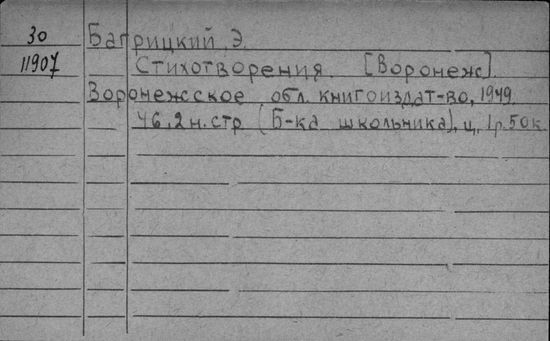 30 Багрицкий Э.
11907 Стихотворения. [Воронеж].
Воронежское обл. книгоиздат-во, 1949.
46, 2 н. стр. (Б-ка школьника), ц. 1 р. 50 к.